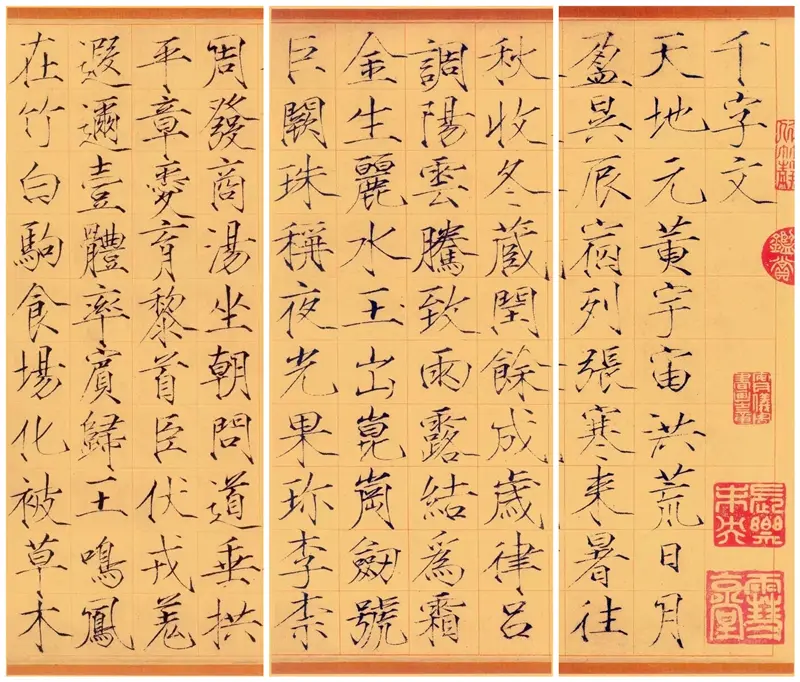 千字文
天地元黃宇宙洪荒日月
盈昃辰宿列張寒来暑往
秋收冬蔵閏餘成歲律呂
調陽雲騰致雨露結爲霜
金生麗水玉出崑崗劒號
巨闕珠稱夜光果珎李柰
周發商湯坐朝問道垂拱
平章愛育黎首臣伏戎羌
遐邇壹體率賓歸王鳴鳳
在竹白駒食場化被草木
鑑賞
長樂未央